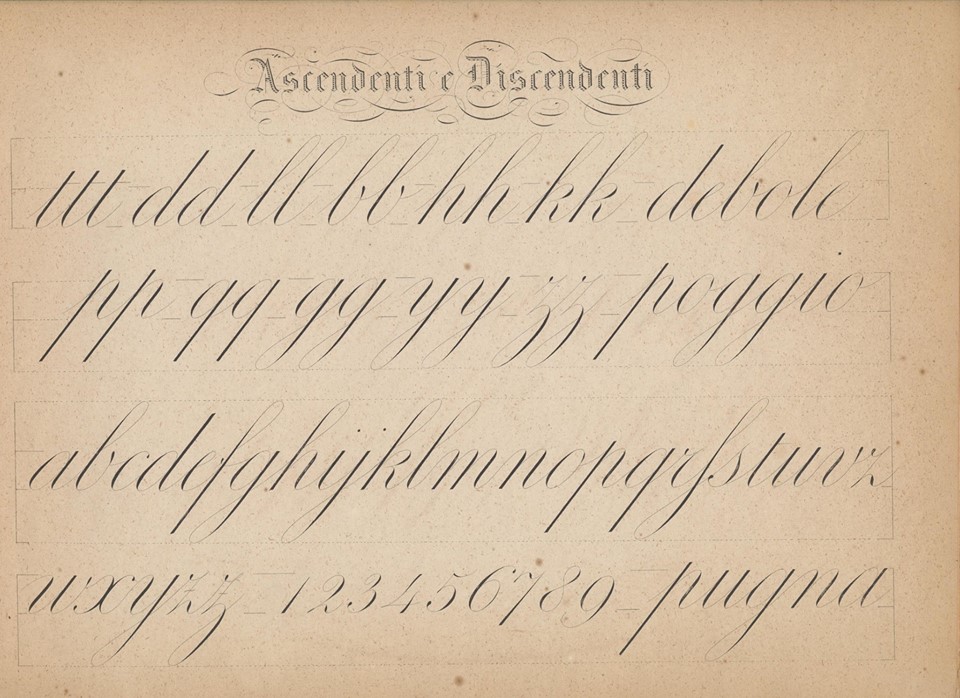 Ascendenti e Discendenti
ttt dd ll bb hh kk debole
pp qq gg yy zz poggio
abcdefghijklmnopqrſstuvz
wxyzz 1234567890 pugna